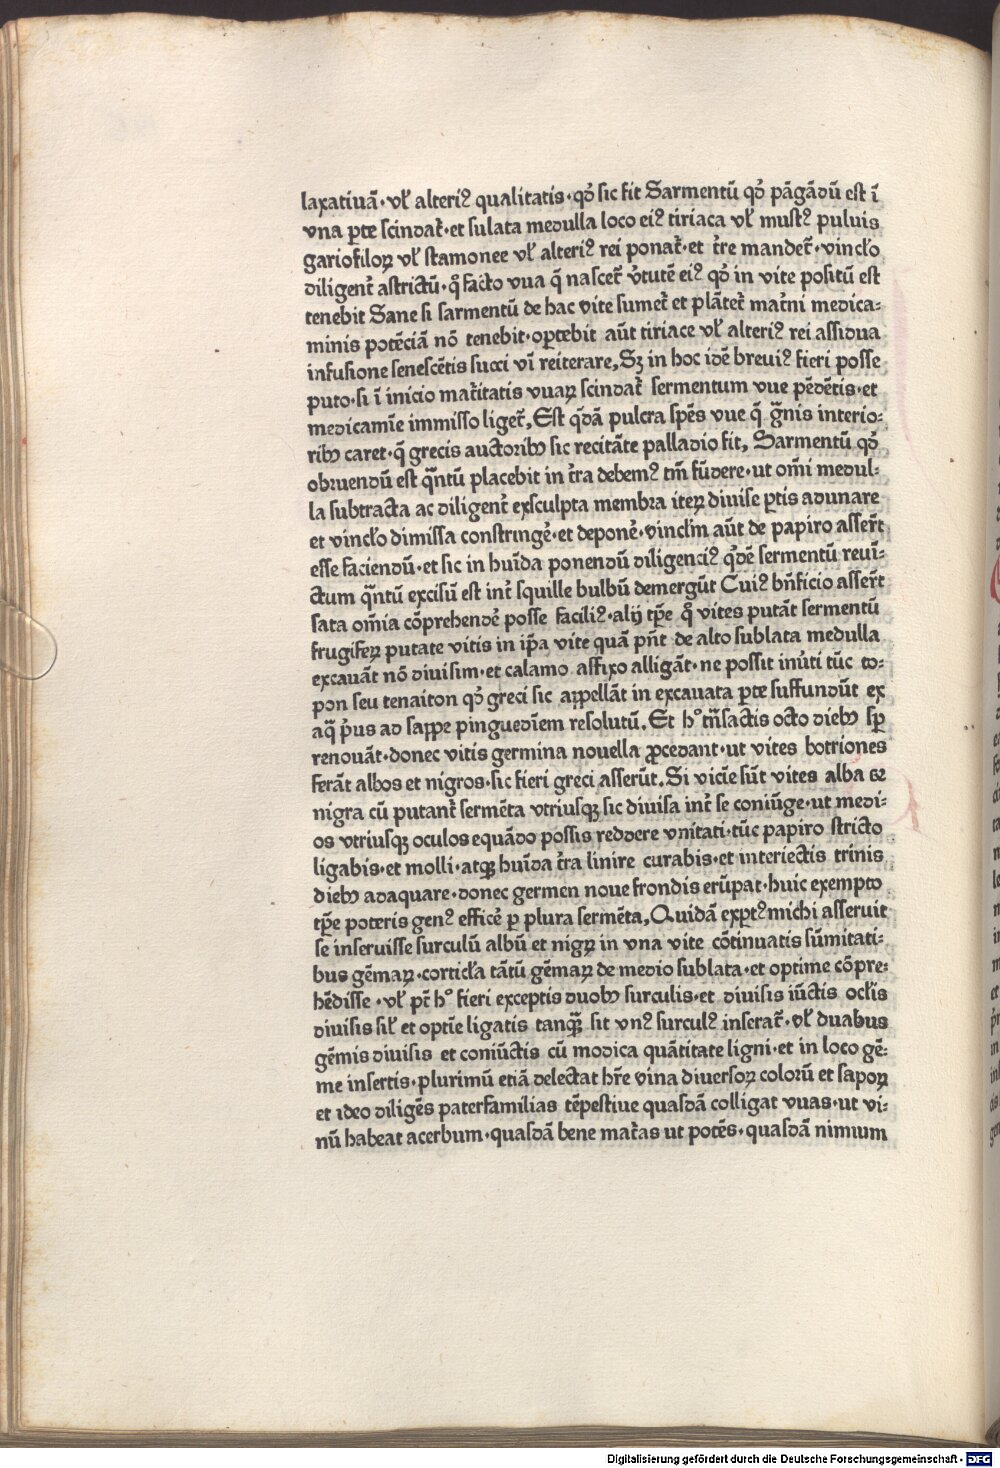 laxatiuā· vł alteriꝰ qualitatis· qđ sic fit Sarmentū qđ pāgādū est ī
vna ꝑte scindat᷑· et sulata medulla loco eiꝰ tiriaca vł mustꝰ puluis
gariofiloꝝ vł stamonee vł alteriꝰ rei ponat᷑· et t̄re mandet᷑· vincło
diligent᷑ astrictū· qͦ facto vua q̄ nascet᷑ v̓tutē eiꝰ qđ in vite positū est
tenebit Sane si sarmentū de hac vite sumet᷑ et plātet᷑ mat̓ni medica⸗
minis potēciā nō tenebit· oꝑtebit aūt tiriace vł alteriꝰ rei assidua
infusione senescētis succi vī reiterare, Sꝫ in hoc idē breuiꝰ fieri posse
puto· si ī inicio mat̓itatis vuaꝝ scindat᷑ sermentum vue pēdētis· et
medicamīe immisso liget᷑, Est q̄dā pulcra spēs vue q̄ gͣnis interio⸗
ribꝫ caret· q̄ grecis auctoribꝫ sic recitāte palladio fit, Sarmentū qđ
obruendū est qͣntū placebit in t̓ra debemꝰ tm̄ fūdere· ut om̄i medul⸗
la subtracta ac diligent᷑ exsculpta membra iteꝝ diuise ꝑtis adunare
et vincło dimissa constringe᷑· et depone᷑· vincłm aūt de papiro asser̄t
esse faciendū· et sic in huīda ponendū diligenciꝰ q̓dē sermentū reuī⸗
ctum qͣntū excisū est int᷑ squille bulbū demergūt Cuiꝰ bn̄ficio asser̄t
sata om̄ia cōprehende᷑ posse faciliꝰ· alij tꝑe qͦ vites putāt sermentū
frugifeꝝ putate vitis in ip̄a vite quā pn̄t de alto sublata medulla
excauāt nō diuisim· et calamo affixo alligāt· ne possit inu̓ti tūc to⸗
pon seu tenaiton qđ greci sic appellāt in excauata ꝑte suffundūt ex
aq̄ p̓us ad sappe pinguedīem resolutū. Et hͦ tn̄sactis octo diebꝫ sꝑ
renouāt· donec vitis germina nouella ꝓcedant· ut vites botriones
ferāt albos et nigros· sic fieri greci asserūt. Si vicīe sūt vites alba et
nigra cū putant᷑ sermēta vtriusqꝫ sic diuisa int᷑ se coniūge· ut medi⸗
os vtriusqꝫ oculos equādo possis reddere vnitati· tūc papiro stricto
ligabis· et molli· atqꝫ huīda t̓ra linire curabis· et interiectis trinis
diebꝫ adaquare· donec germen noue frondis erūpat· huic exempto
tꝑe poteris genꝰ effice᷑ ꝑ plura sermēta, Quidā exꝑtꝰ michi asseruit
se inseruisse surculū albū et nigꝝ in vna vite cōtinuatis sūmitati⸗
bus gēmaꝝ· corticła tātū gēmaꝝ de medio sublata· et optime cōpre⸗
hēdisse · vł pt̄ hͦ fieri exceptis duobꝫ surculis· et diuisis iūctis ocłis
diuisis sił et optīe ligatis tanqͣ̄ sit vnꝰ surculꝰ inserat᷑· vł duabus
gēmis diuisis et coniūctis cū modica quātitate ligni· et in loco gē⸗
me insertis· plurimū etiā delectat hr̄e vina diuersoꝝ coloꝝ et sapoꝝ
et ideo diligēs paterfamilias tēpestiue quasdā colligat vuas· ut vi⸗
nū habeat acerbum· quasdā bene mat̓as ut potēs· quasdā nimium
Digitalisierung gefördert durch die Deutsche Forschungsgemeinschaft - DFG